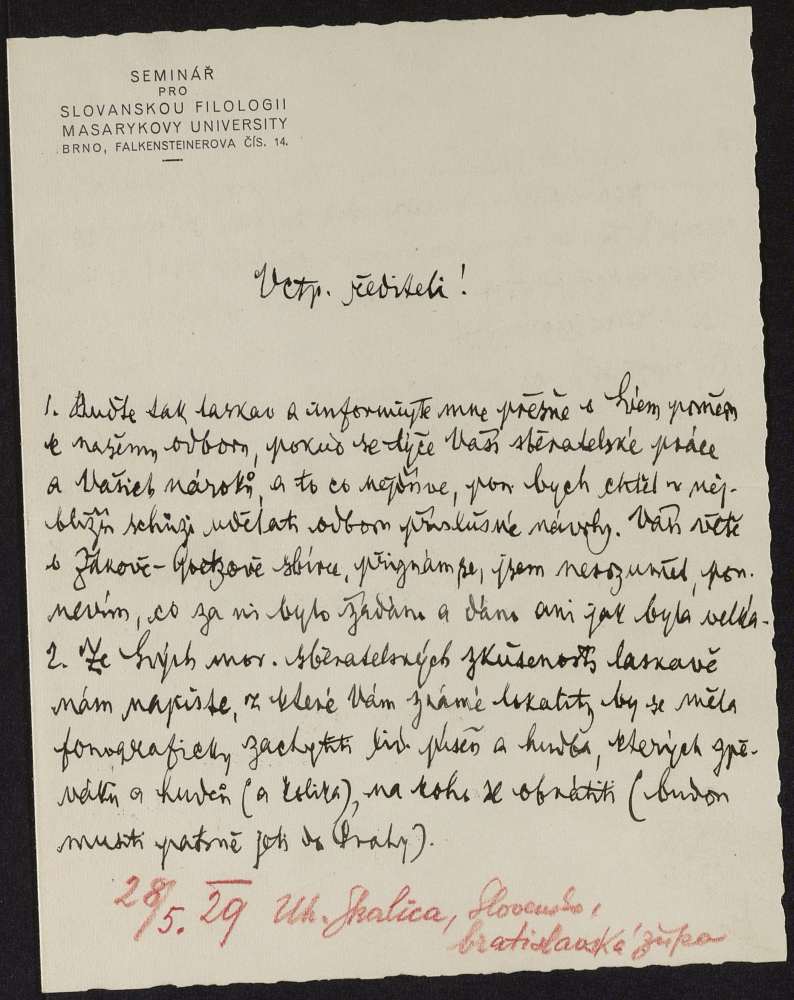 SEMINÁŘ
PRO
SLOVANSKOU FILOLOGII
MASARYKOVY UNIVERSITY
BRNO, FALKENSTEINEROVA ČÍS. 14.
Vctp. řediteli!
1. Buďte tak laskav a informujte mne přesně o Svém poměru
k našemu odboru, pokud se týče Vaší sběratelské práce
a Vašich nároků, a to co nejdříve, pon. bych chtěl v nej-
bližší schůzi udělati odboru příslušné návrhy. Vaší větě
o Žákově- sbírce, přiznám se, jsem nerozuměl, pon.
nevím, co za ni bylo žádáno a dáno ani jak byla velká.
2. Ze Svých mor. sběratelských zkušeností laskavě
nám napište, z které Vám známé lokality by se měla
fonograficky zachytiti lid. píseň a hudba, kterých zpě-
váků a hudců (a kolika), na koho se obrátiti (budou
musiti patrně jeti do Prahy).
28/5. 29 Uh. Skalica, Slovensko,
bratislavská župa